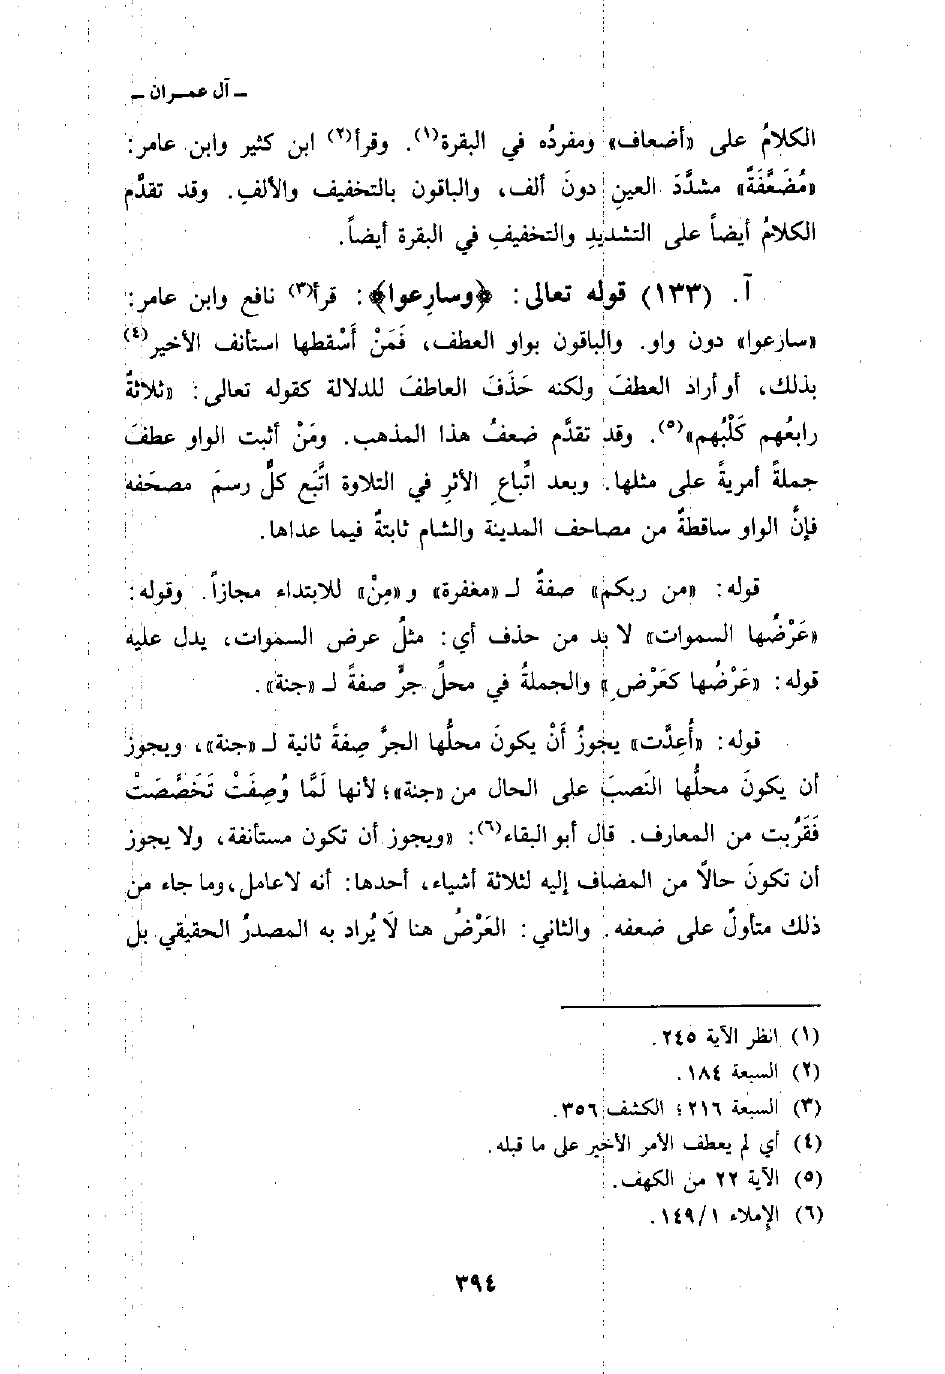 ـ آل عمـران ـ
الكلامُ على «أضعاف» ومفردُه في البقرة(١). وقرأ(٢) ابن كثير وابن عامر:
«مُضَعَّفَةً» مشدَّدَ العينِ دونَ ألف، والباقون بالتخفيف والألفِ. وقد تقدَّم
الكلامُ أيضاً على التشديدِ والتخفيفِ في البقرة أيضاً.
آ. (١٣٣) قوله تعالى: ﴿وسارِعوا﴾: قرأ(٣) نافع وابن عامر:
«سارعوا» دون واو. والباقون بواو العطف، فَمَنْ أَسْقطها استأنف الأخير(٤)
بذلك، أو أراد العطفَ ولكنه حَذَفَ العاطفَ للدلالة كقوله تعالى: «ثلاثةٌ
رابعُهم كَلْبُهم»(٥). وقد تقدَّم ضعفُ هذا المذهب. ومَنْ أثبت الواو عطفَ
جملةً أمريةً على مثلها. وبعد اتِّباعِ الأثرِ في التلاوة اتَّبَع كلٌّ رسمَ مصحَفه
فإنَّ الواو ساقطةٌ من مصاحف المدينة والشام ثابتةٌ فيما عداها.
قوله: «من ربكم» صفةٌ لـ «مغفرة» و «مِنْ» للابتداء مجازاً. وقوله:
«عَرْضُها السموات» لا بد من حذف أي: مثلُ عرض السموات، يدل عليه
قوله: «عَرْضُها كعَرْضِ» والجملةُ في محلِّ جرٍّ صفةً لـ «جنة».
قوله: «أُعِدَّت» يجوزُ أَنْ يكونَ محلُّها الجرَّ صِفةً ثانية لـ «جنة»، ويجوز
أن يكونَ محلُّها النَصبَ على الحال من «جنة»؛ لأنها لَمَّا وُصِفَتْ تَخَصَّصَتْ
فَقَرُبت من المعارف. قال أبو البقاء(٦): «ويجوز أن تكون مستأنفة، ولا يجوز
أن تكونَ حالاً من المضاف إليه لثلاثة أشياء، أحدها: أنه لا عامل، وما جاء من
ذلك متأولٌ على ضعفه. والثاني: العَرْضُ هنا لاَ يُراد به المصدرُ الحقيقي بل
(١) انظر الآية ٢٤٥.
(٢) السبعة ١٨٤.
(٣) السبعة ٢١٦؛ الكشف ٣٥٦.
(٤) أي لم يعطف الأمر الأخير على ما قبله.
(٥) الآية ٢٢ من الكهف.
(٦) الإملاء ١/١٤٩.
٣٩٤